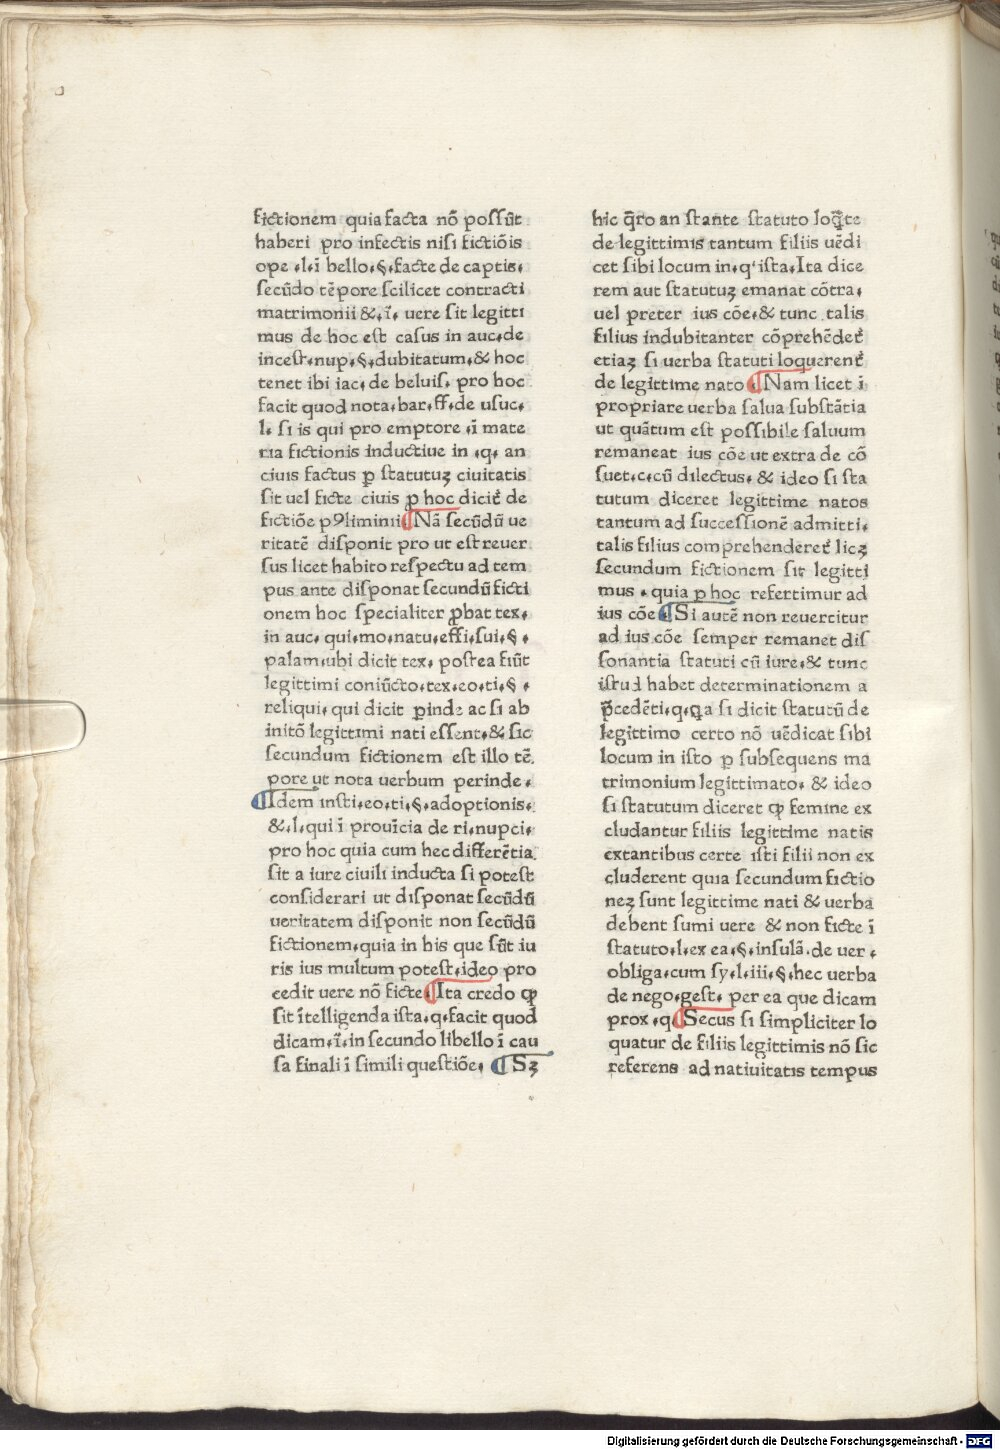 fictionem quia facta nõ possũt
haberi pro infectis nisi fictiõis
ope .l.ĩ bello.§.facte de captis.
secũdo tẽpore scilicet contracti
matrimonii &.ĩ. uere sit legitti
mus de hoc est casus in auc.de
incest.nup.§.dubitatum.& hoc
tenet ibi iac.de beluis. pro hoc
facit quod nota.bar.ff.de usuc.
l. si is qui pro emptore .ĩ mate
ria fictionis inductiue in .q. an
ciuis factus ꝑ statutuʒ ciuitatis
sit uel ficte ciuis ꝑ hoc dicit᷑ de
fictiõe pꝯliminii ¶Nã secũdũ ue
ritatẽ disponit pro ut est reuer
sus licet habito respectu ad tem
pus ante disponat secundũ ficti
onem hoc specialiter ꝓbat tex.
in auc. qui.mo.natu.effi.sui.§.
palam.ubi dicit tex. postea fiũt
legittimi coniũcto.tex.eo.ti.§.
reliqui. qui dicit ꝑinde ac si ab
initõ legittimi nati essent.& sic
secundum fictionem est illo tẽ
pore ut nota uerbum perinde.
¶Idem insti.eo.ti.§.adoptionis.
&.l.qui ĩ prouĩcia de ri.nupci.
pro hoc quia cum hec differẽtia
sit a iure ciuili inducta si potest
considerari ut disponat secũdũ
ueritatem disponit non secũdũ
fictionem.quia in his que sũt iu
ris ius multum potest.ideo pro
cedit uere nõ ficte ¶Ita credo ꝙ
sit ĩtelligenda ista.q.facit quod
dicam.ĩ.in secundo libello ĩ cau
sa finali ĩ simili questiõe. ¶Sʒ
hic q̃ro an stante statuto loq̃te
de legittimis tantum filiis uẽdi
cet sibi locum in.q.ista.Ita dice
rem aut statutuʒ emanat cõtra.
uel preter ius cõe.& tunc talis
filius indubitanter cõprehẽdet᷑
etiaʒ si uerba statuti loquerent᷑
de legittime nato ¶Nam licet ĩ
propriare uerba salua substãtia
ut quãtum est possibile saluum
remaneat ius cõe ut extra de cõ
suet.c.cũ dilectus. & ideo si sta
tutum diceret legittime natos
tantum ad successionẽ admitti.
talis filius comprehenderet᷑ licʒ
secundum fictionem sit legitti
mus . quia ꝑ hoc refertimur ad
ius cõe ¶Si autẽ non reuertitur
ad ius cõe semper remanet dis
sonantia statuti cũ iure.& tunc
istud habet determinationem a
p̃cedẽti.q.q̃a si dicit statutũ de
legittimo certo nõ uẽdicat sibi
locum in isto ꝑ subsequens ma
trimonium legittimato. & ideo
si statutum diceret ꝙ femine ex
cludantur filiis legittime natis
extantibus certe isti filii non ex
cluderent quia secundum fictio
neʒ sunt legittime nati & uerba
debent sumi uere & non ficte ĩ
statuto.l.ex ea.§.insulã.de uer.
obliga.cum sy.l.iii.§.hec uerba
de nego.gest. per ea que dicam
prox.q. ¶Secus si simpliciter lo
quatur de filiis legittimis nõ sic
referens ad natiuitatis tempus
Digitalisierung gefördert durch die Deutsche Forschungsgemeinschaft - DFG